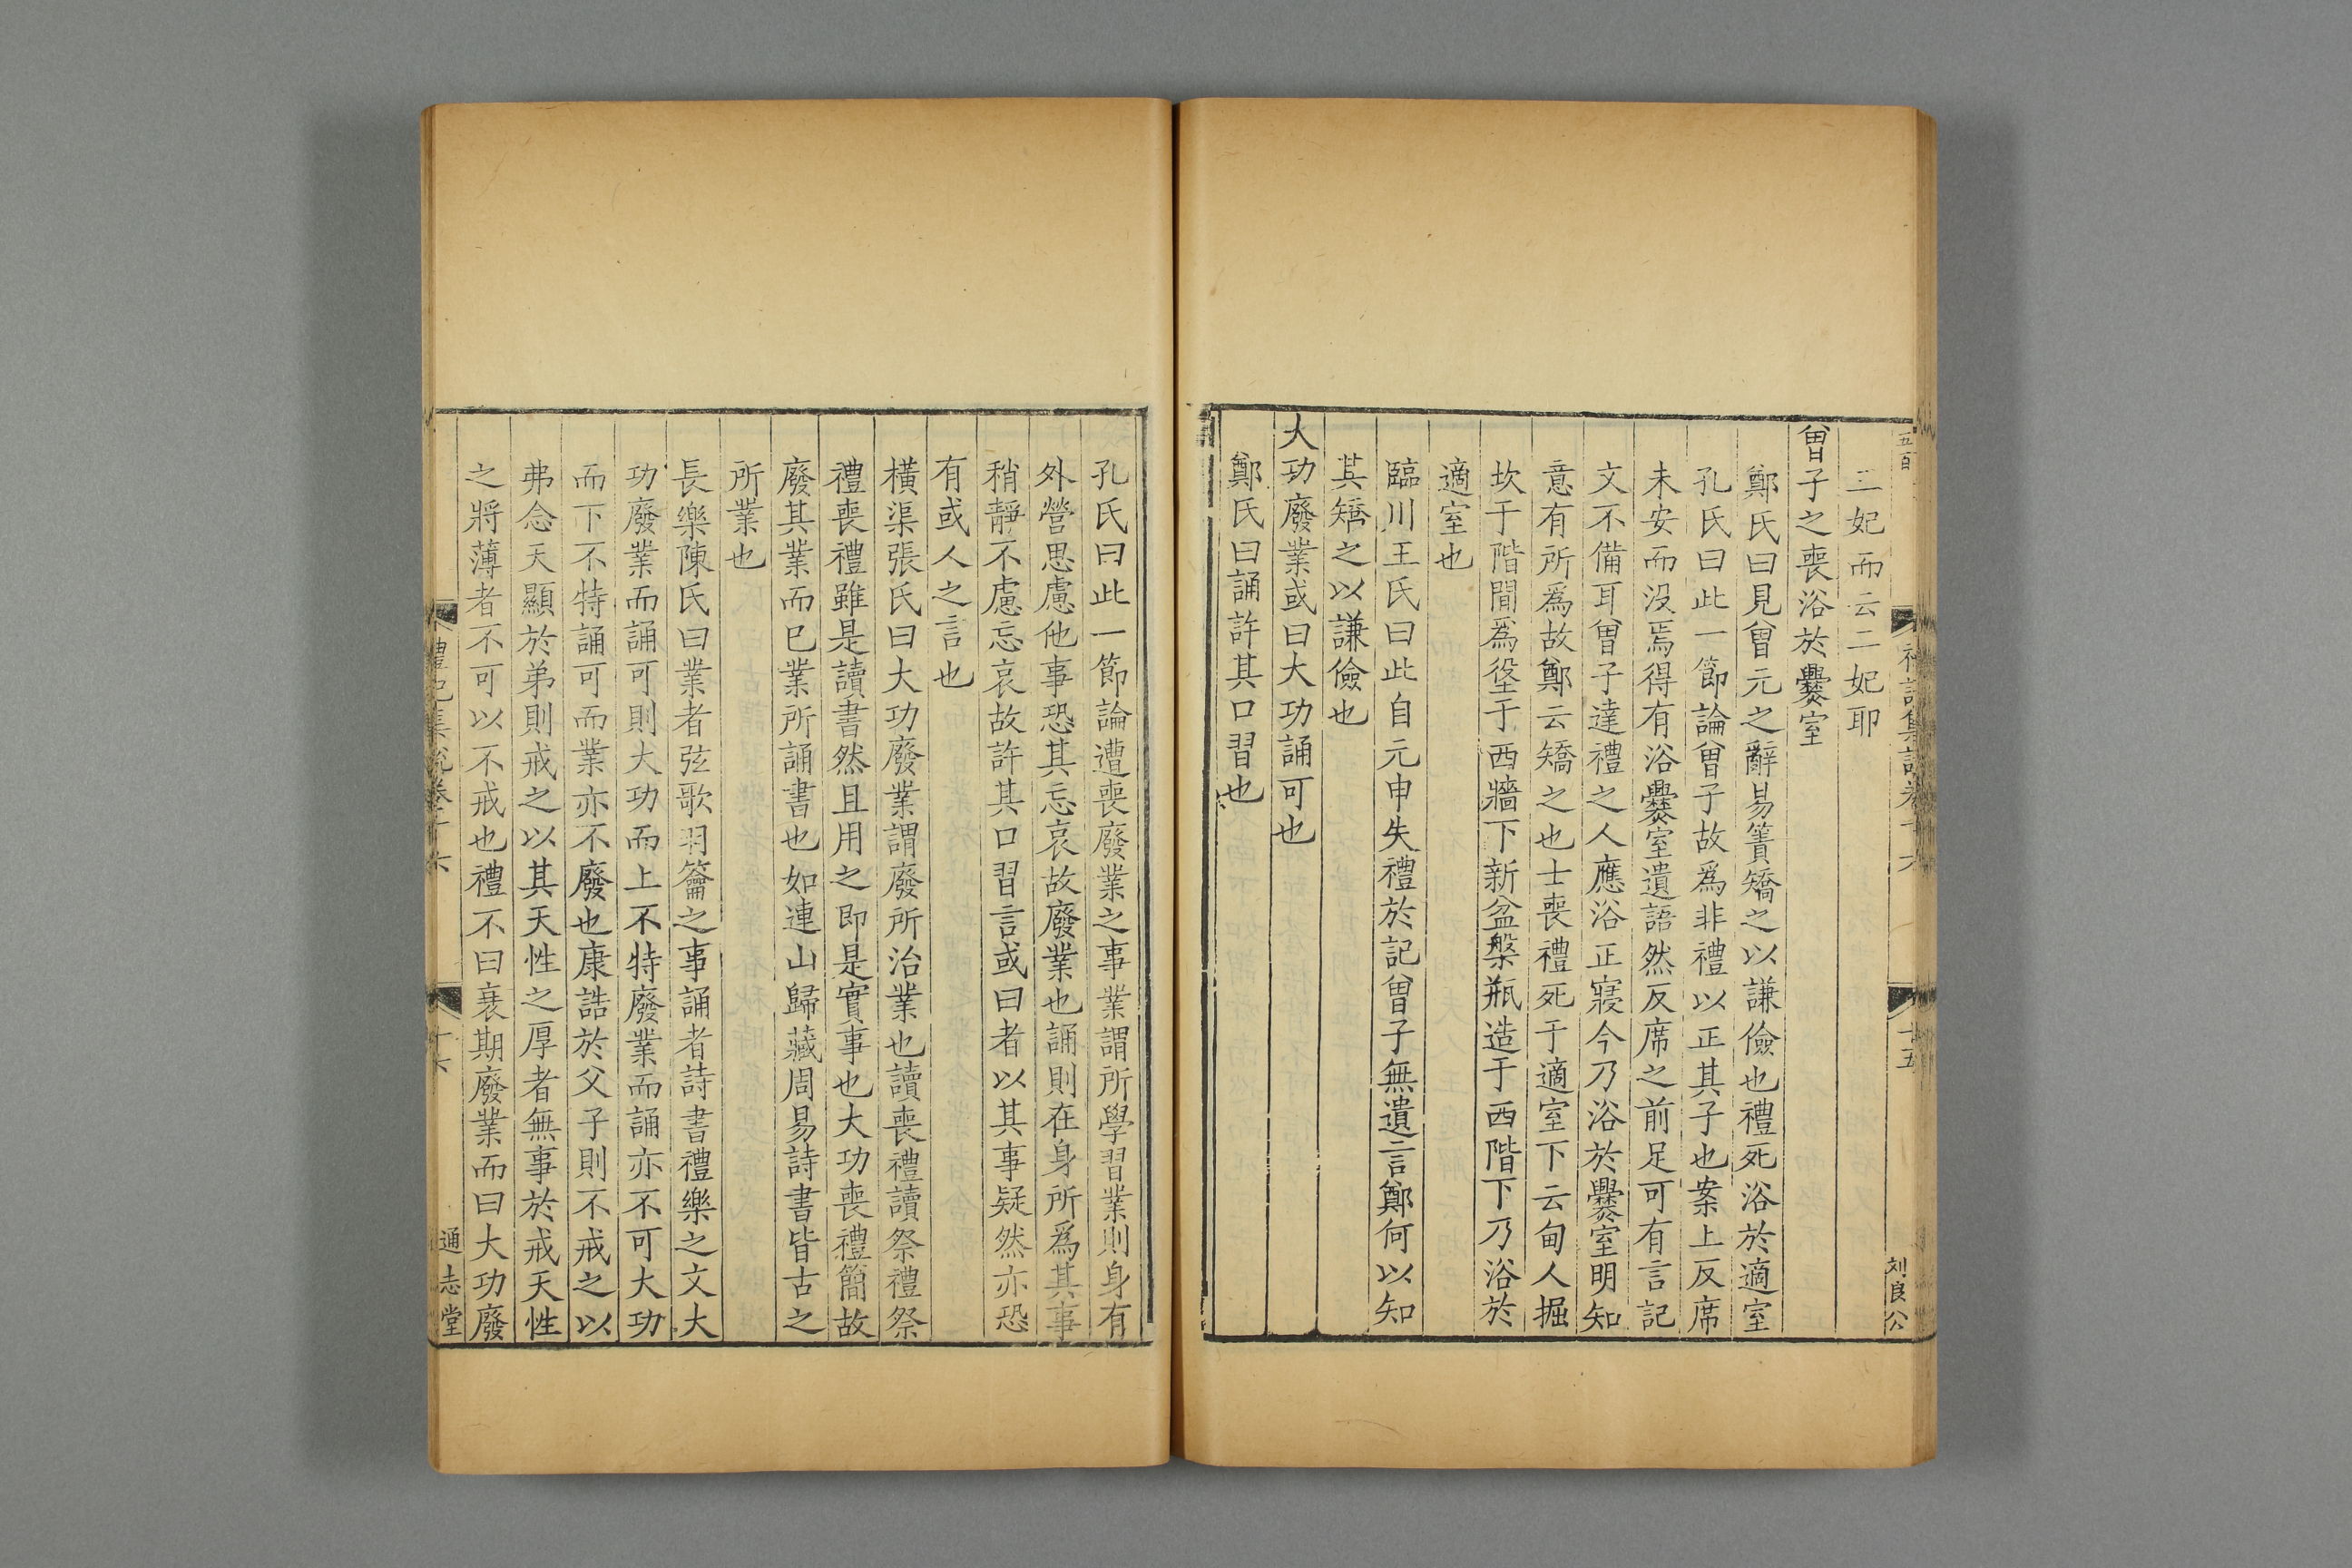 三妃而云二妃耶
曾子之喪浴於爨室
鄭氏曰見曾元之辭易簀矯之以謙儉也禮死浴於適室
孔氏曰此一節論曾子故爲非禮以正其子也案上反席
未安而没焉得有浴爨室遺語然反席之前足可有言記
文不備耳曾子達禮之人應浴正寢今乃浴於爨室明知
意有所爲故鄭云矯之也士喪禮死于適室下云甸人掘
坎于階間爲垼于西牆下新盆槃瓶造于西階下乃浴於
適室也
臨川王氏曰此自元申失禮於記曾子無遺言鄭何以知
其矯之以謙儉也
大功廢業或曰大功誦可也
鄭氏曰誦許其口習也
五百
禮記集說卷十六
十五
刘良公
孔氏曰此一節論遭喪廢業之事業謂所學習業則身有
外營思慮他事恐其忘哀故廢業也誦則在身所爲其事
稍靜不慮忘哀故許其口習言或曰者以其事疑然亦恐
有或人之言也
橫渠張氏曰大功廢業謂廢所治業也讀喪禮讀祭禮祭
禮喪禮雖是讀書然且用之即是實事也大功喪禮簡故
廢其業而已業所誦書也如連山歸藏周易詩書皆古之
所業也
長樂陳氏曰業者弦歌羽籥之事誦者詩書禮樂之文大
功廢業而誦可則大功而上不特廢業而誦亦不可大功
而下不特誦可而業亦不廢也康誥於父子則不戒之以
弗念天顯於弟則戒之以其天性之厚者無事於戒天性
之將薄者不可以不戒也禮不曰衰期廢業而曰大功廢
禮記集說卷十六
十六
通志堂